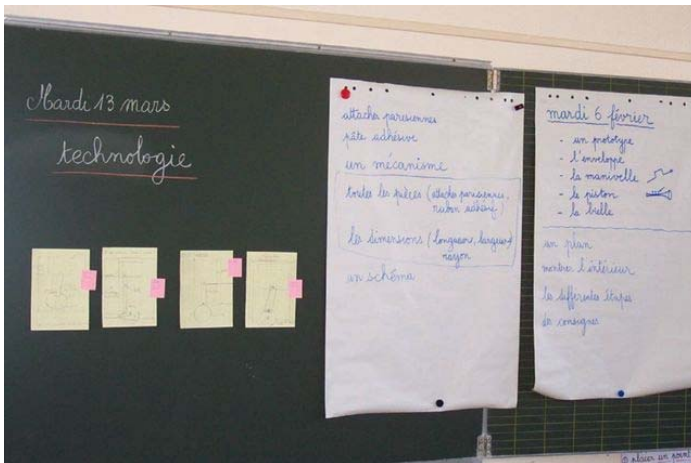 Mardi 13 mars
technologie
attaches parisiennes
pâte adhésive
un mécanisme
toutes les pièces (attaches parisiennes,
ruban adhésif)
les dimensions (longueur, largeur)
rayon
un schéma
mardi 6 février
- un prototype
- l'enveloppe
- la manivelle
- le piston
- la bielle
un plan
montrer l'intérieur
les différentes étapes
des consignes
placer un point